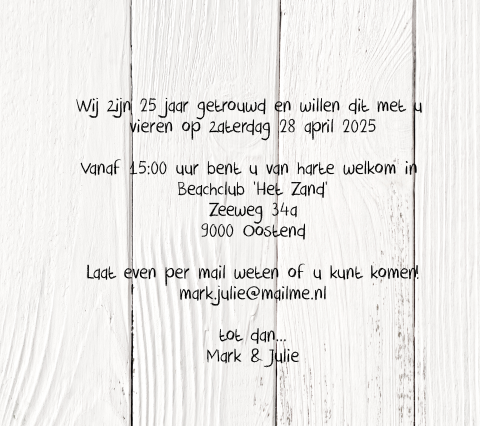 Wij zijn 25 jaar getrouwd en willen dit met u
vieren op zaterdag 28 april 2025
Vanaf 15:00 uur bent u van harte welkom in
Beachclub 'Het Zand'
Zeeweg 34a
9000 Oostend
Laat even per mail weten of u kunt komen!
mark.julie@mailme.nl
tot dan...
Mark & Julie